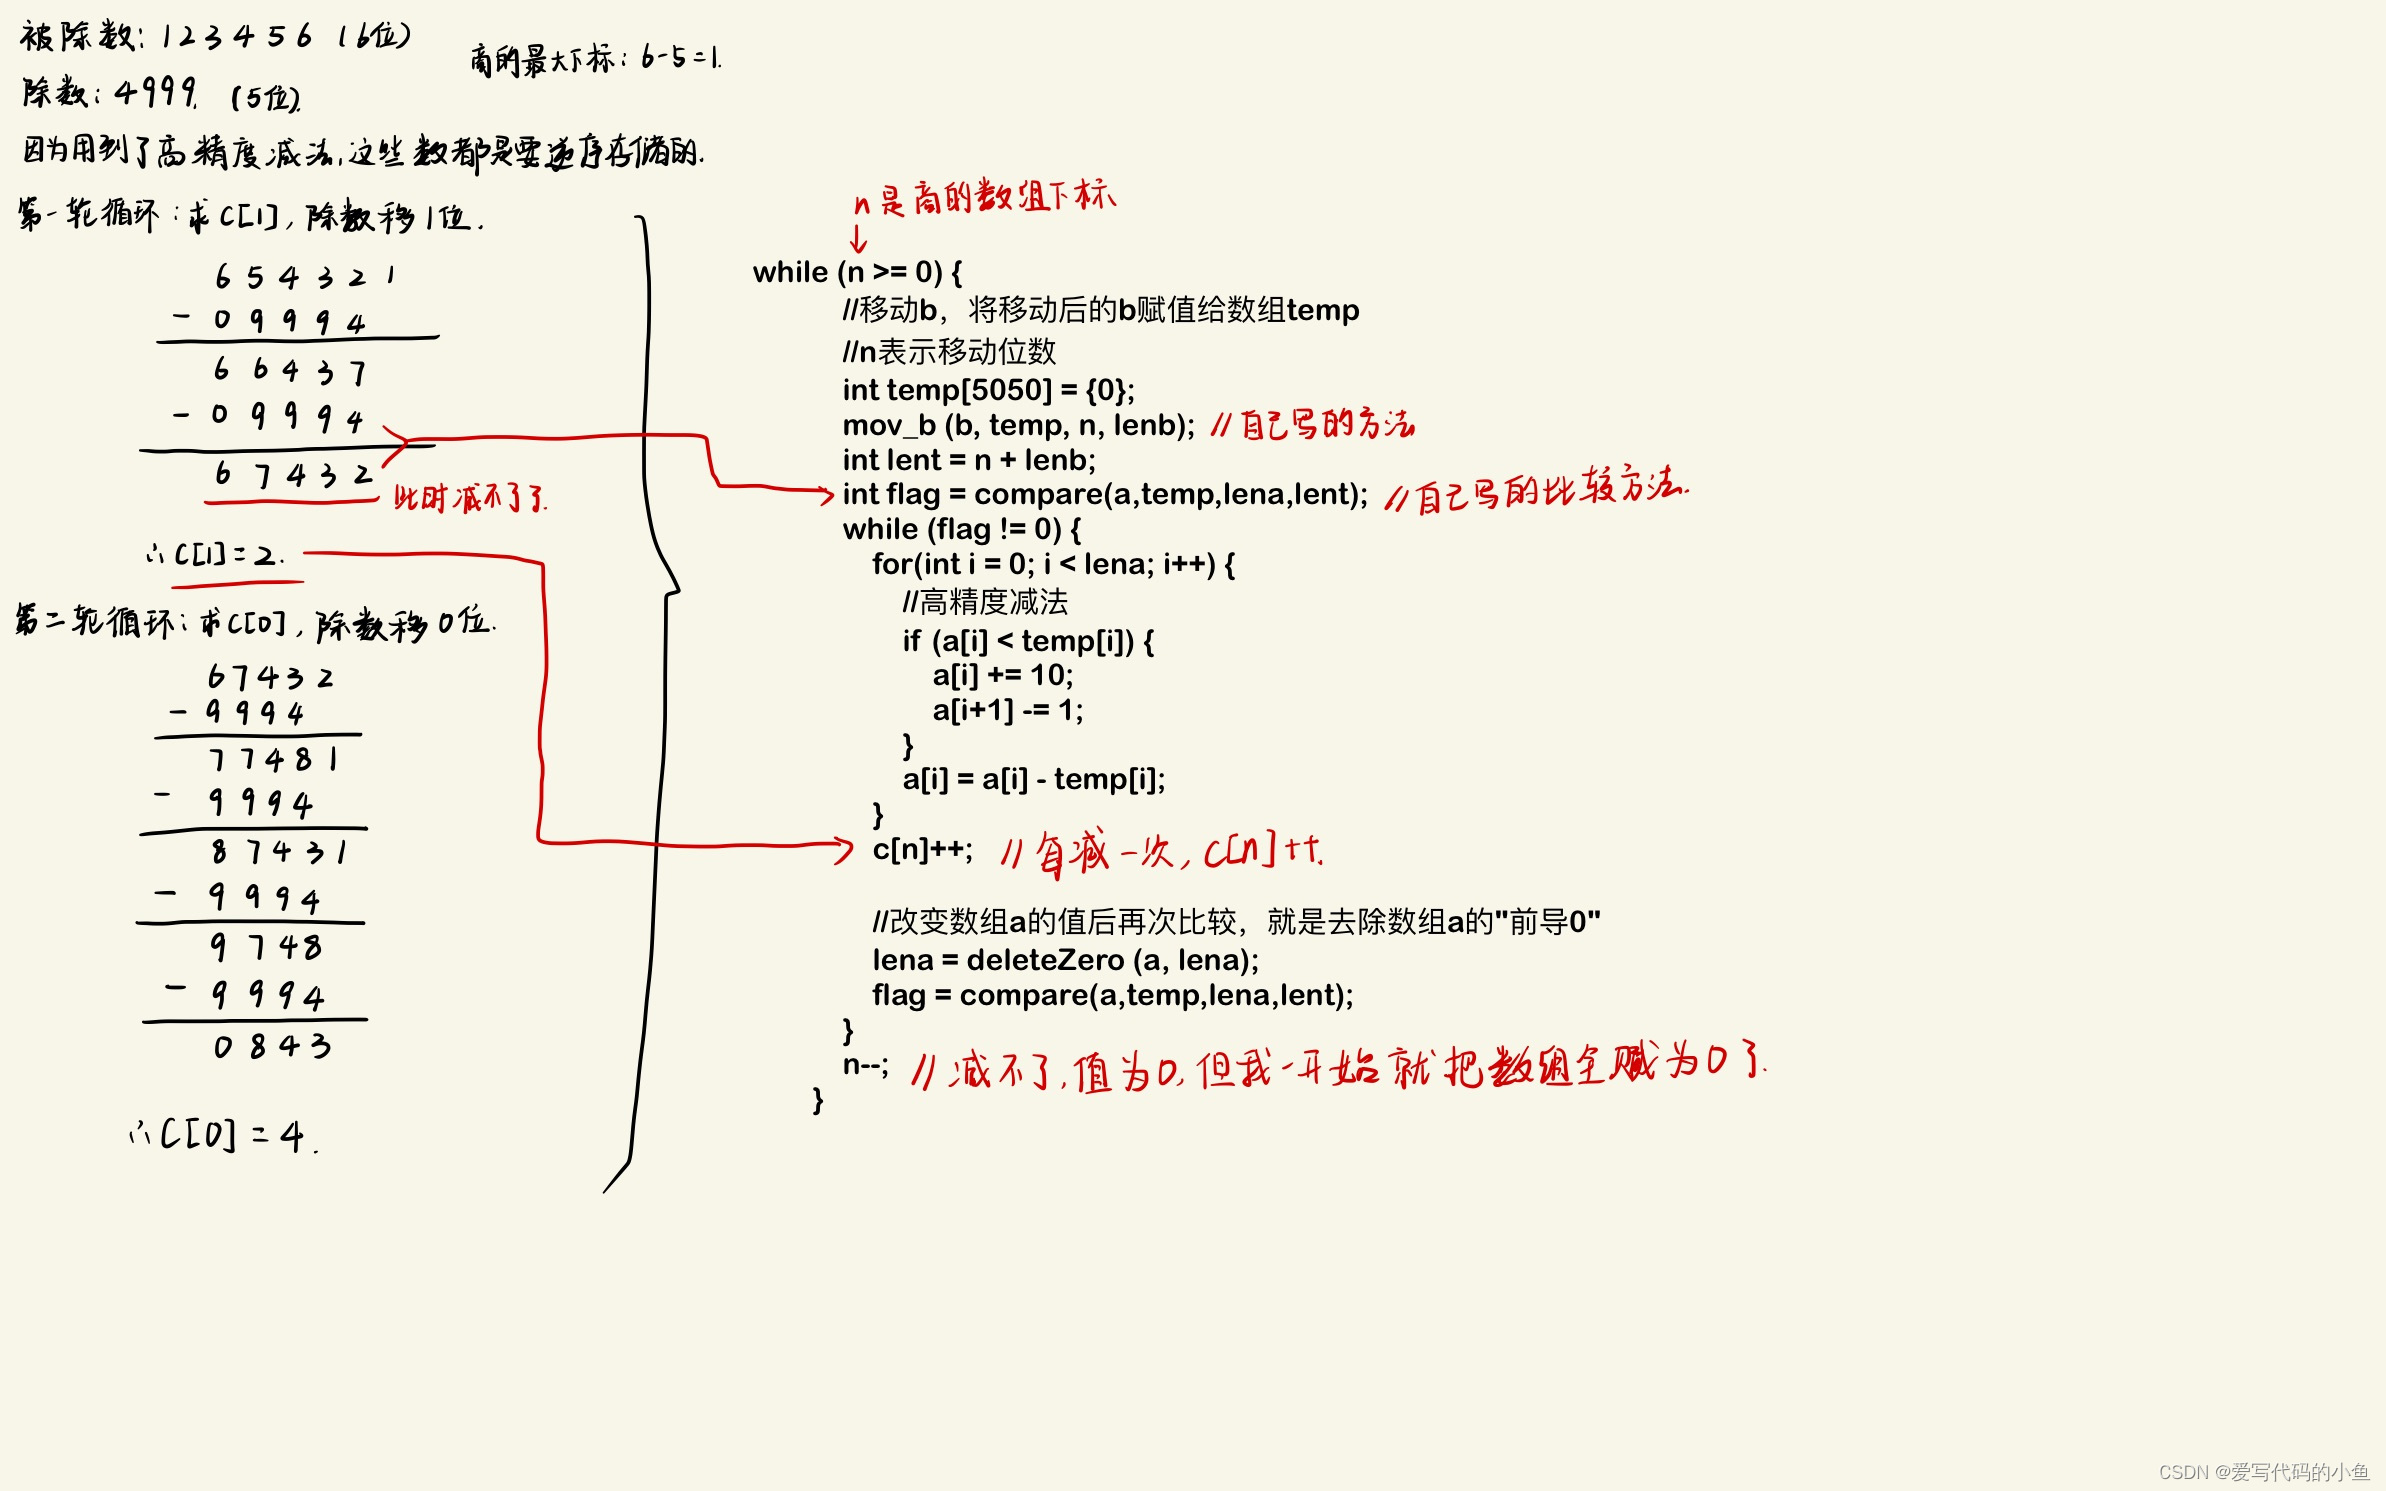 被除数：123456（6位）
商的最大下标：6-5=1.
除数：4999.（5位）.
因为用到了高精度减法，这些数都是要逆序存储的.
第一轮循环：求C[1]，除数移1位.
654321
- 09994
66437
- 09994
67432
此时减不了了.
∴C[1]=2.
第二轮循环：求C[0]，除数移0位.
67432
- 9994
77481
- 9994
87431
- 9994
9748
- 9994
0843
∴C[0]=4.
n是商的数组下标
↓
while (n >= 0) {
//移动b，将移动后的b赋值给数组temp
//n表示移动位数
int temp[5050] = {0};
mov_b (b, temp, n, lenb); //自己写的方法
int lent = n + lenb;
int flag = compare(a,temp,lena,lent); //自己写的比较方法.
while (flag != 0) {
for(int i = 0; i < lena; i++) {
//高精度减法
if (a[i] < temp[i]) {
a[i] += 10;
a[i+1] -= 1;
}
a[i] = a[i] - temp[i];
}
c[n]++; //每减一次，C[n]++.
//改变数组a的值后再次比较，就是去除数组a的"前导0"
lena = deleteZero (a, lena);
flag = compare(a,temp,lena,lent);
}
n--; //减不了，值为0，但我一开始就把数组全赋为0了.
}
CSDN @爱写代码的小鱼